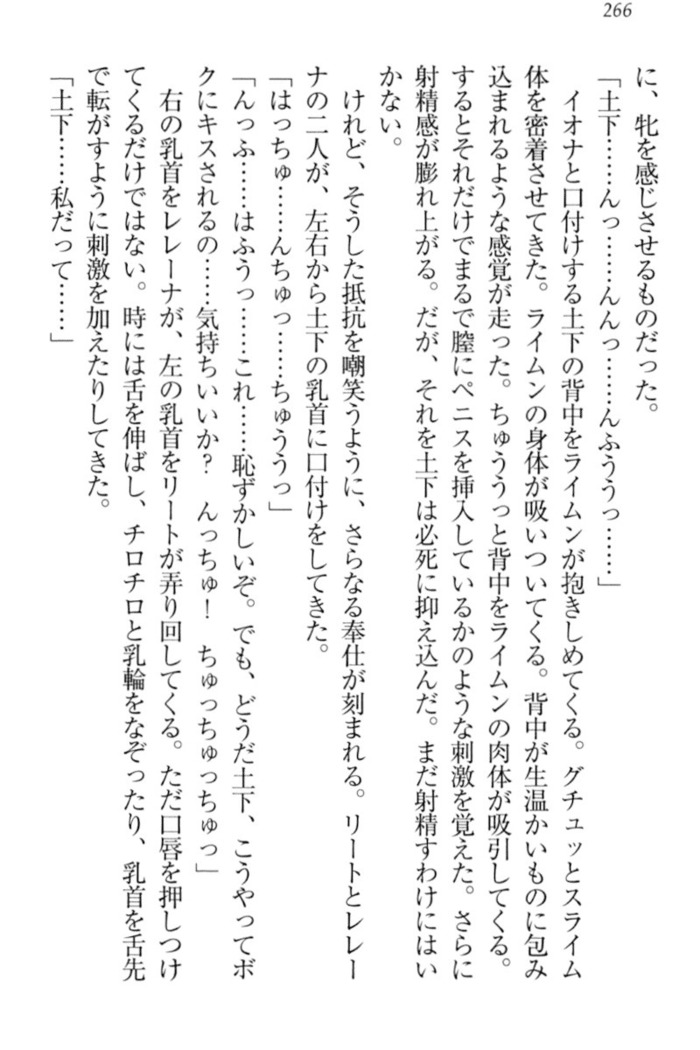 266
に、牝を感じさせるものだった。
「土下……んっ……んんっ……んふううっ……」
　イオナと口付けする土下の背中をライムンが抱きしめてくる。グチュッとスライム
体を密着させてきた。ライムンの身体が吸いついてくる。背中が生温かいものに包み
込まれるような感覚が走った。ちゅううっと背中をライムンの肉体が吸引してくる。
するとそれだけでまるで膣にペニスを挿入しているかのような刺激を覚えた。さらに
射精感が膨れ上がる。だが、それを土下は必死に抑え込んだ。まだ射精すわけにはい
かない。
　けれど、そうした抵抗を嘲笑うように、さらなる奉仕が刻まれる。リートとレレー
ナの二人が、左右から土下の乳首に口付けをしてきた。
「はっちゅ……んちゅっ……ちゅううっ」
「んっふ……はふうっ……これ……恥ずかしいぞ。でも、どうだ土下、こうやってボ
クにキスされるの……気持ちいいか？　んっちゅ！　ちゅっちゅっちゅっ」
　右の乳首をレレーナが、左の乳首をリートが弄り回してくる。ただ口唇を押しつけ
てくるだけではない。時には舌を伸ばし、チロチロと乳輪をなぞったり、乳首を舌先
で転がすように刺激を加えたりしてきた。
「土下……私だって……」